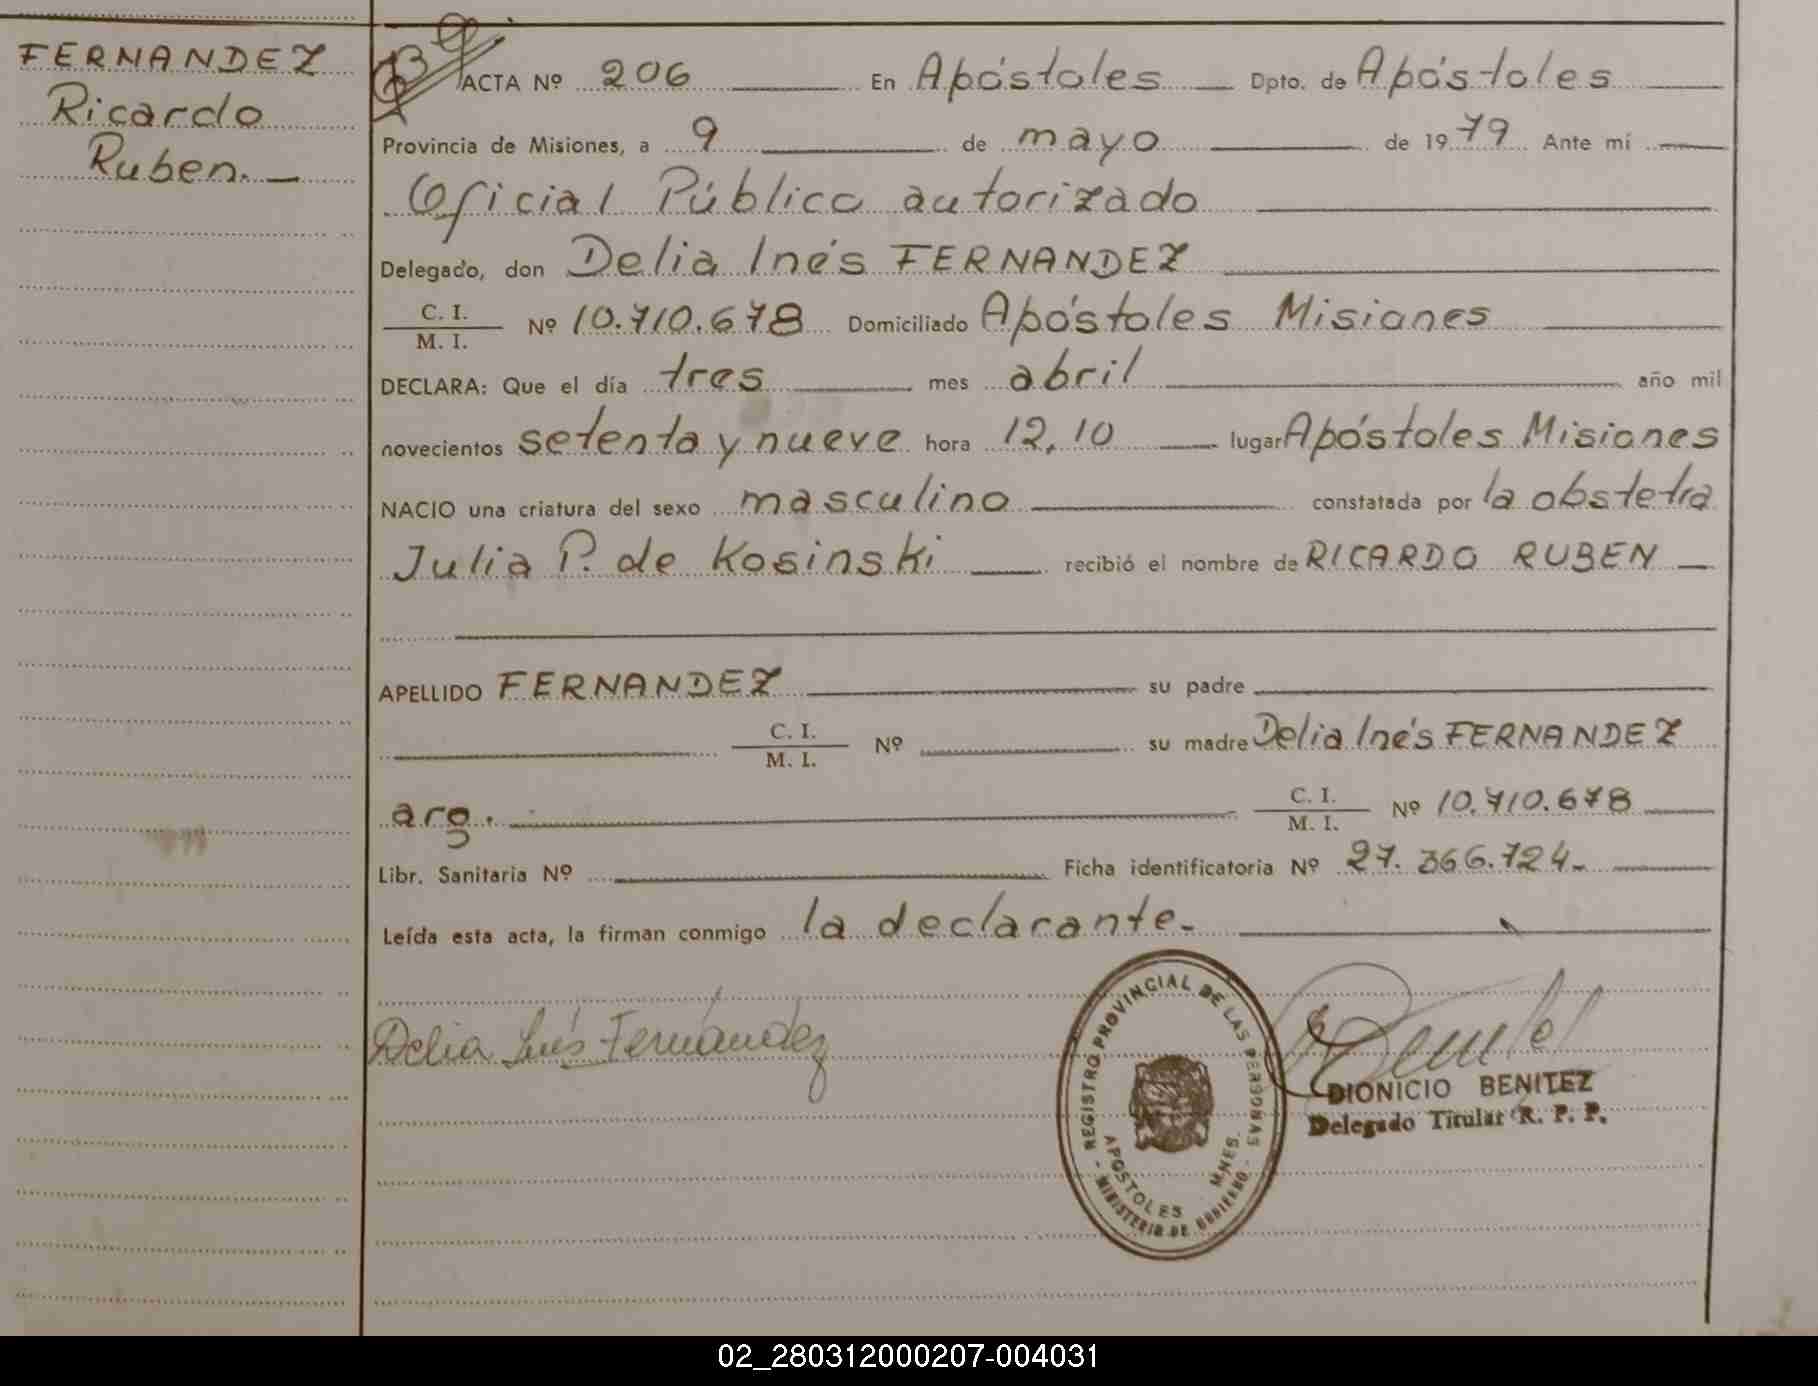 FERNANDEZ
Ricardo
Ruben.
ACTA Nº 206 En Apóstoles Dpto. de Apóstoles
Provincia de Misiones, a 9 de mayo de 1979 Ante mí
Oficial Público autorizado
Delegado, don Delia Inés FERNANDEZ
C. I.
M. I.
Nº 10.710.678 Domiciliado Apóstoles Misiones
DECLARA: Que el día tres mes abril año mil
novecientos setenta y nueve hora 12,10 lugar Apóstoles Misiones
NACIO una criatura del sexo masculino constatada por la obstetra
Julia P. de Kosinski recibió el nombre de RICARDO RUBEN
APELLIDO FERNANDEZ su padre
C. I.
M. I.
Nº su madre Delia Inés FERNANDEZ
arg.
C. I.
M. I.
Nº 10.710.678
Libr. Sanitaria Nº Ficha identificatoria Nº 27.366.724-
Leída esta acta, la firman conmigo la declarante-
Delia Inés Fernández
REGISTRO PROVINCIAL DE LAS PERSONAS
APOSTOLES MNES.
MINISTERIO DE GOBIERNO
DIONICIO BENITEZ
Delegado Titular R. P. P.
02_280312000207-004031